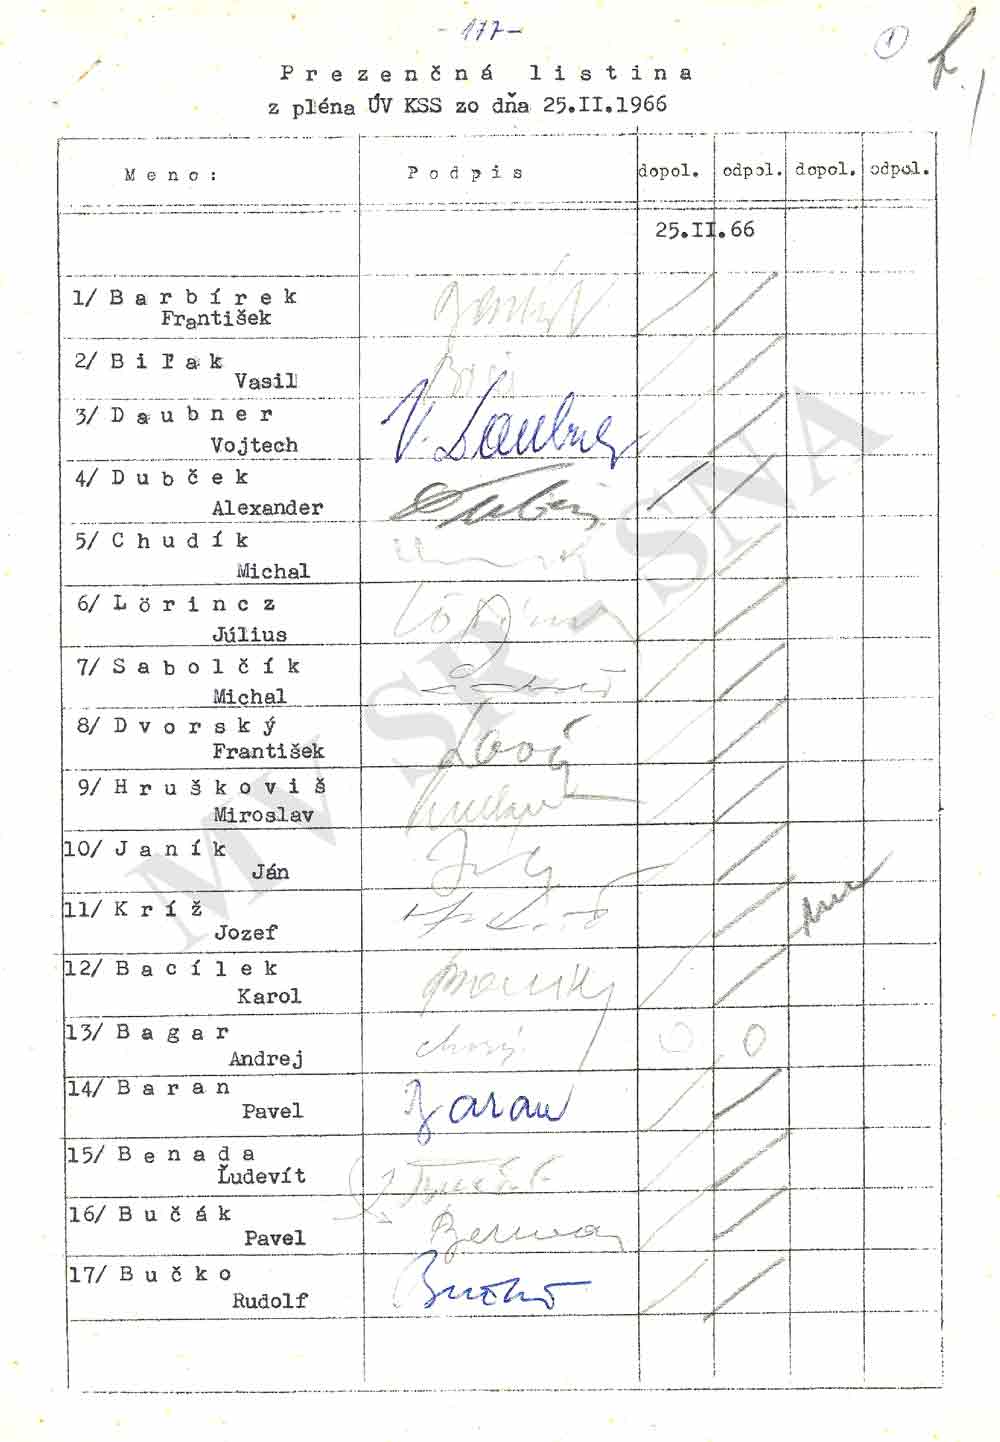 - 177 -
1
Prezenčná listina
z pléna ÚV KSS zo dňa 25.II.1966
Meno: Podpis dopol. odpol. dopol. odpol.
25.II.66
1/ Barbírek
František
2/ Biľak
Vasil
3/ Daubner V. Daubner
Vojtech
4/ Dubček Dubček
Alexander
5/ Chudík
Michal
6/ Lörincz Lörincz
Július
7/ Sabolčík
Michal
8/ Dvorský
František
9/ Hruškoviš
Miroslav
10/ Janík
Ján
11/ Kríž
Jozef
12/ Bacílek
Karol
13/ Bagar chorý O O
Andrej
14/ Baran Baran
Pavel
15/ Benada
Ľudevít
16/ Bučák
Pavel
17/ Bučko Bučko
Rudolf
MV SR - SNA